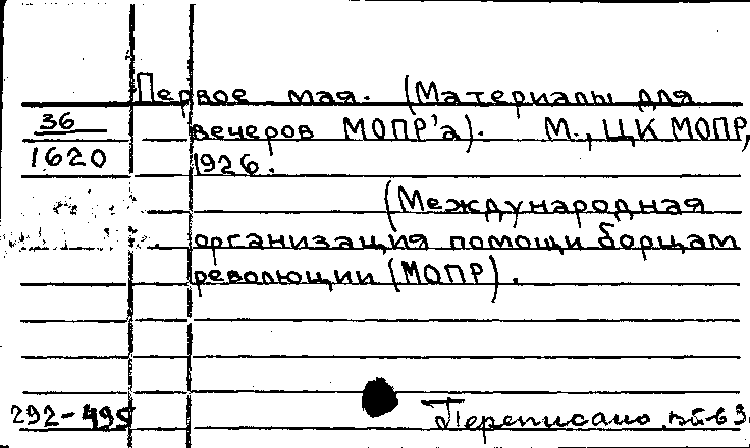 Первое мая. (Материалы для
36
вечеров МОПР'а). М., ЦК МОПР,
1620
1926.
(Международная
организация помощи борцам
революции (МОПР).
292-495
Переписано